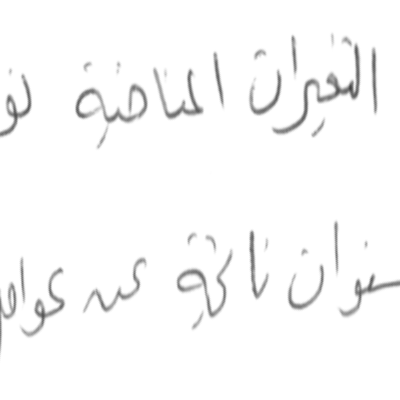 التغيرات المناخية
سنوات ناتجة عن عوامل